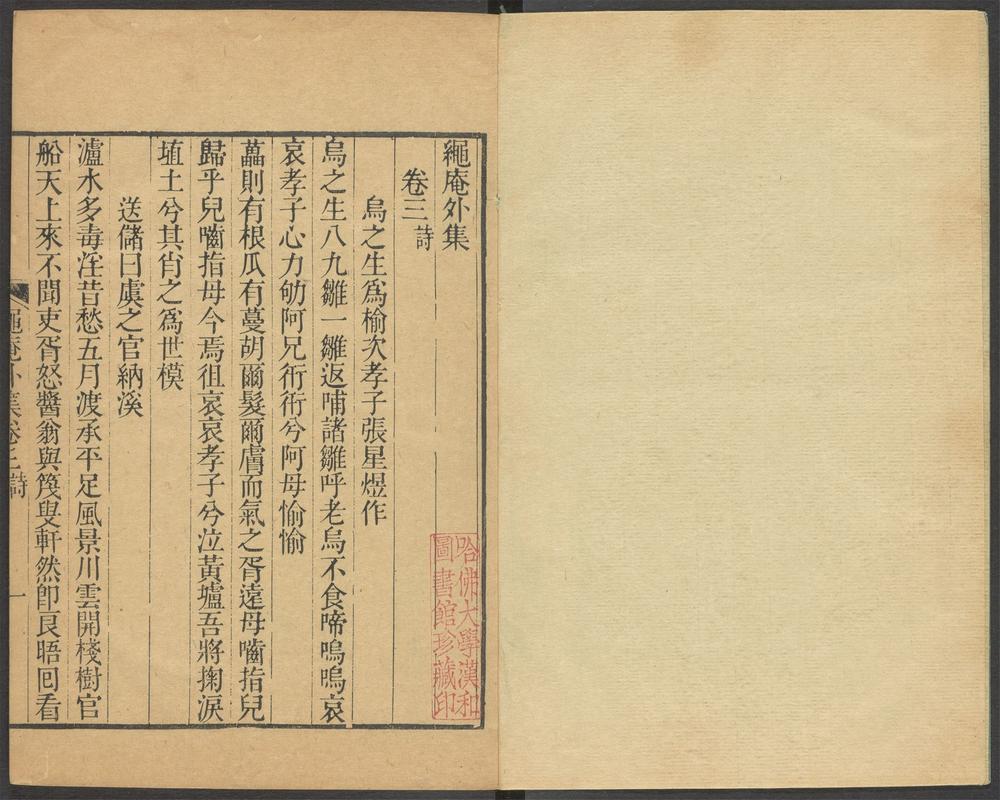 繩庵外集
卷三 詩
烏之生爲榆次孝子張星煜作
烏之生八九雛一雛返哺諸雛呼老烏不食啼嗚嗚哀
哀孝子心力劬阿兄衎衎兮阿母愉愉
藟則有根瓜有蔓胡爾髮爾膚而氣之胥遠母嚙指兒
歸乎兒嚙指母今焉徂哀哀孝子兮泣黃壚吾將掬淚
埴土兮其肖之爲世模
送儲曰虞之官納溪
瀘水多毒淫昔愁五月渡承平足風景川雲開棧樹官
船天上來不聞吏胥怒醬翁與篾叟軒然卽良晤回看
繩庵外集卷三 詩
一
哈佛大學漢和
圖書館珍藏印